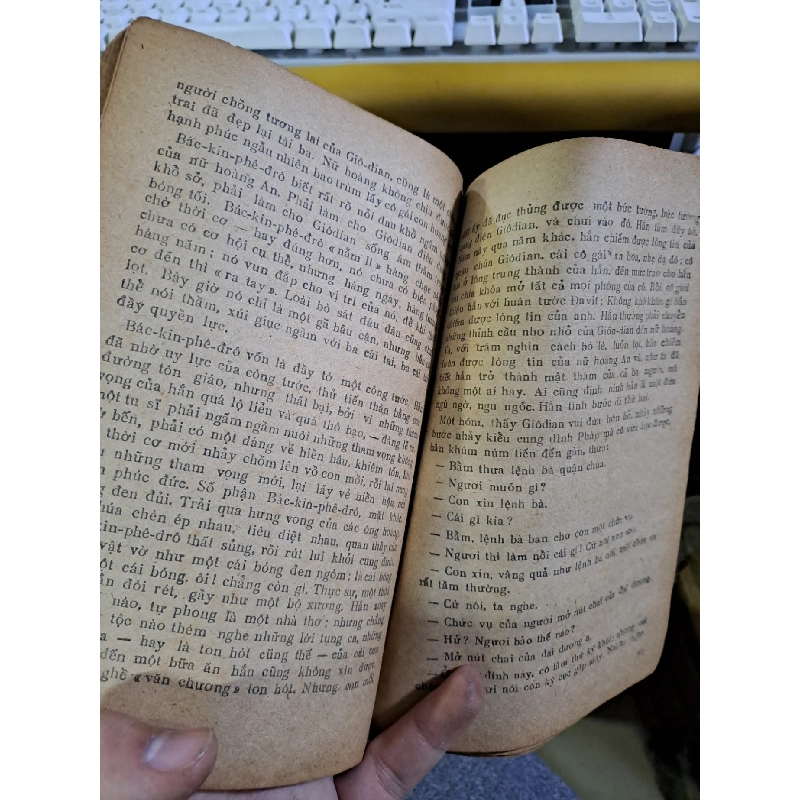 người chồng tương lai của Giô-dian, cũng là một
trai đã đẹp lại tài ba. Nữ hoàng không chịu đựng
hạnh phúc ngẫu nhiên bao trùm lấy cô gái con hoang
của nữ hoàng An. Phải làm cho Giôdian điêu
khổ sở, phải làm cho Giôdian sống âm thầm
bóng tối. Bác-kin-phê-đrô «nằm lì» hàng chục
chờ thời cơ — hay đúng hơn, nó chưa có biệt
chưa có cơ hội cụ thể, nhưng hàng ngày, hàng
hàng năm: nó vun đắp cho vị trí của nó, để khi
cơ đến thì «ra tay». Loài bò sát đâu đâu cũng
lọt. Bây giờ nó chỉ là một gã hầu cận, nhưng
thể nói thầm, xúi giục ngầm với ba cái tai, ba cái
đầy quyền lực.
Bác-kin-phê-đrô vốn là đầy tớ một công tước. Hắn
đã nhờ uy lực của công tước, thử tiến thân bằng con
đường tôn giáo, nhưng thất bại, bởi vì những tham
vọng của hắn quá lộ liễu và quá thô bạo, — đáng lẽ
một tu sĩ phải ngấm ngầm nuôi những tham vọng không
bến, phải có một dáng vẻ hiền hậu, khiêm tốn,
thời cơ mới nhảy chồm lên vồ con mồi, rồi lại
những tham vọng mới, lại lấy vẻ hiền hậu, nói
phúc đức. Số phận Bác-kin-phê-đrô, mặt khác
đen đủi. Trải qua hưng vong của các ông hoàng
chúa chèn ép nhau, tiêu diệt nhau, quan thầy của
kin-phê-đrô thất sủng, rồi rút lui khỏi cung đình.
vật vờ như một cái bóng đen ngòm: là cái bóng
một cái bóng, ôi! chẳng còn gì. Thực sự, một thời
đói rét, gầy như một bộ xương. Hắn xoay
nào, tự phong là một nhà thơ: nhưng chẳng
tộc nào thèm nghe những lời tụng ca, những
— hay là ton hót cũng thế — của cái con
đến một bữa ăn hắn cũng không xin được.
nghề «văn chương» ton hót. Nhưng con mồi
ấy đã đục thủng được một bức tường, bức tường
điện Giôdian, và chui vào đó. Hắn làm đầy tớ,
này qua năm khác, hắn chiếm được lòng tin của
chúa Giôdian, cái cô gái ra hoa, nhẹ dạ đó; cô
ở lòng trung thành của hắn, đến mức trao cho hắn
chìa khóa mở tất cả mọi phòng của cô. Rồi, cô giới
thiệu hắn với huân tước Đavit; Không khó khăn gì hắn
được lòng tin của anh. Hắn thường phải chuyển
những thỉnh cầu nho nhỏ của Giôo-dian đến nữ hoàng.
Và, với trăm nghìn cách bò lê, luồn lọt, hắn chiếm
luôn được lòng tin của nữ hoàng An và, như ta đã
biết hắn trở thành mật thám của cả ba người, mà
không một ai hay. Ai cũng đinh ninh hắn là một đứa
ngù ngờ, ngu ngốc. Hắn tính bước đi thứ hai.
Một hôm, thấy Giôdian vui đùa hớn hở, nhảy những
bước nhảy kiểu cung đình Pháp mà cô vừa học được,
hắn khúm núm tiến đến gần, thưa:
— Bẩm thưa lệnh bà quận chúa.
— Ngươi muốn gì?
— Con xin lệnh bà.
— Cái gì kia?
— Bẩm, lệnh bà ban cho con một chức vụ.
— Ngươi thì làm nổi cái gì! Cứ nói xem sao.
— Con xin, vâng quả như lệnh bà nói, một chức vụ
rất tầm thường.
— Cứ nói, ta nghe.
— Chức vụ của người mở nút chai của đại dương.
— Hử? Ngươi bảo thế nào?
— Mở nút chai của đại dương ạ.
đình này, có lắm thứ kỳ khôi; nhưng cái
ngươi nói còn kỳ cục gấp mấy.